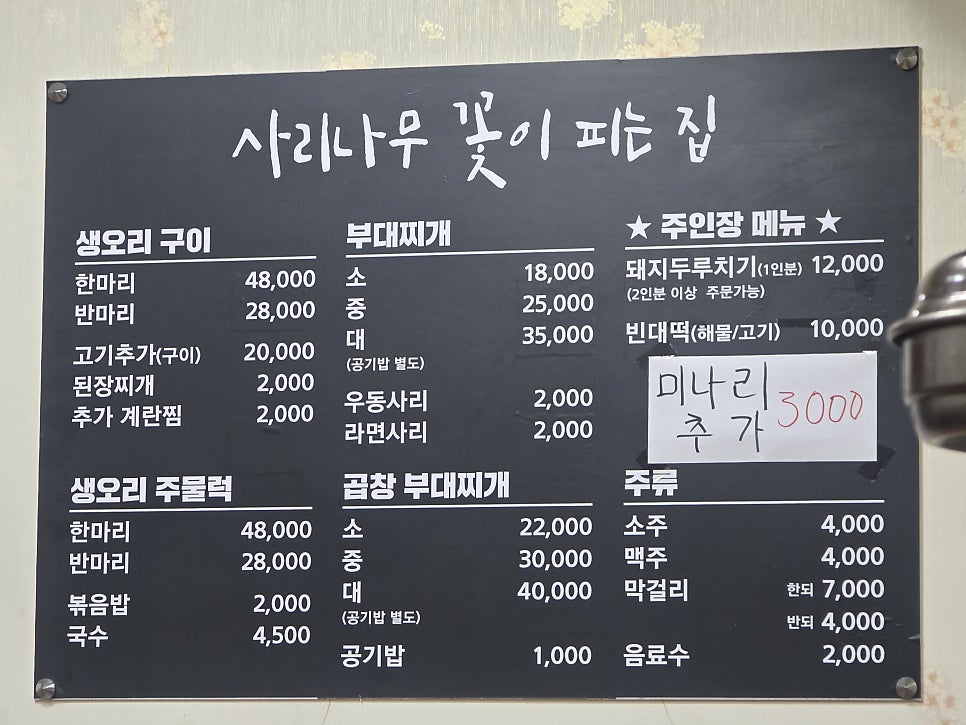 사리나무 꽃이 피는 집
생오리 구이
한마리 48,000
반마리 28,000
고기추가(구이) 20,000
된장찌개 2,000
추가 계란찜 2,000
생오리 주물럭
한마리 48,000
반마리 28,000
볶음밥 2,000
국수 4,500
부대찌개
소 18,000
중 25,000
대 35,000
(공기밥 별도)
우동사리 2,000
라면사리 2,000
곱창 부대찌개
소 22,000
중 30,000
대 40,000
(공기밥 별도)
공기밥 1,000
★ 주인장 메뉴 ★
돼지두루치기(1인분) 12,000
(2인분 이상 주문가능)
빈대떡(해물/고기) 10,000
미나리
추가 3000
주류
소주 4,000
맥주 4,000
막걸리 한되 7,000
반되 4,000
음료수 2,000